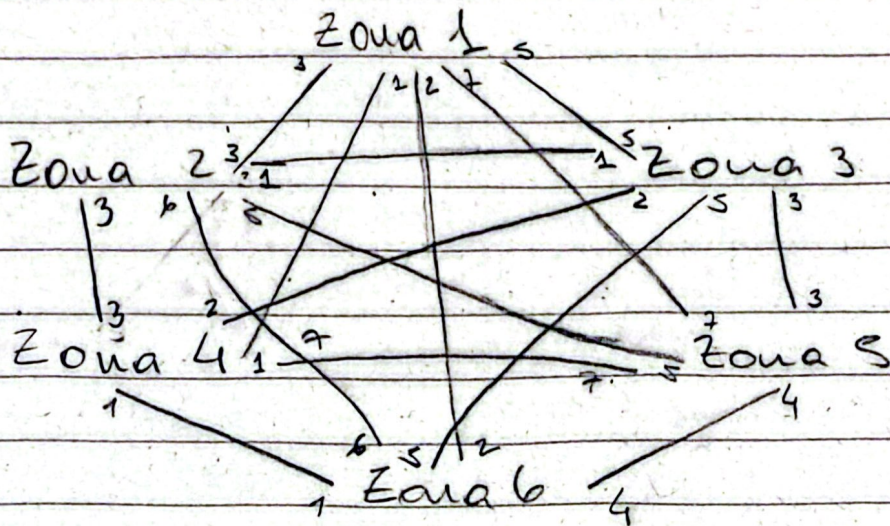 Zona 1
3 1 2 7 5
Zona 2 3 1 1 5 Zona 3
3 6 2 5 3
3 2 7 3
Zona 4 1 7 7 5 Zona 5
1 4
6 5 2
1 Zona 6 4